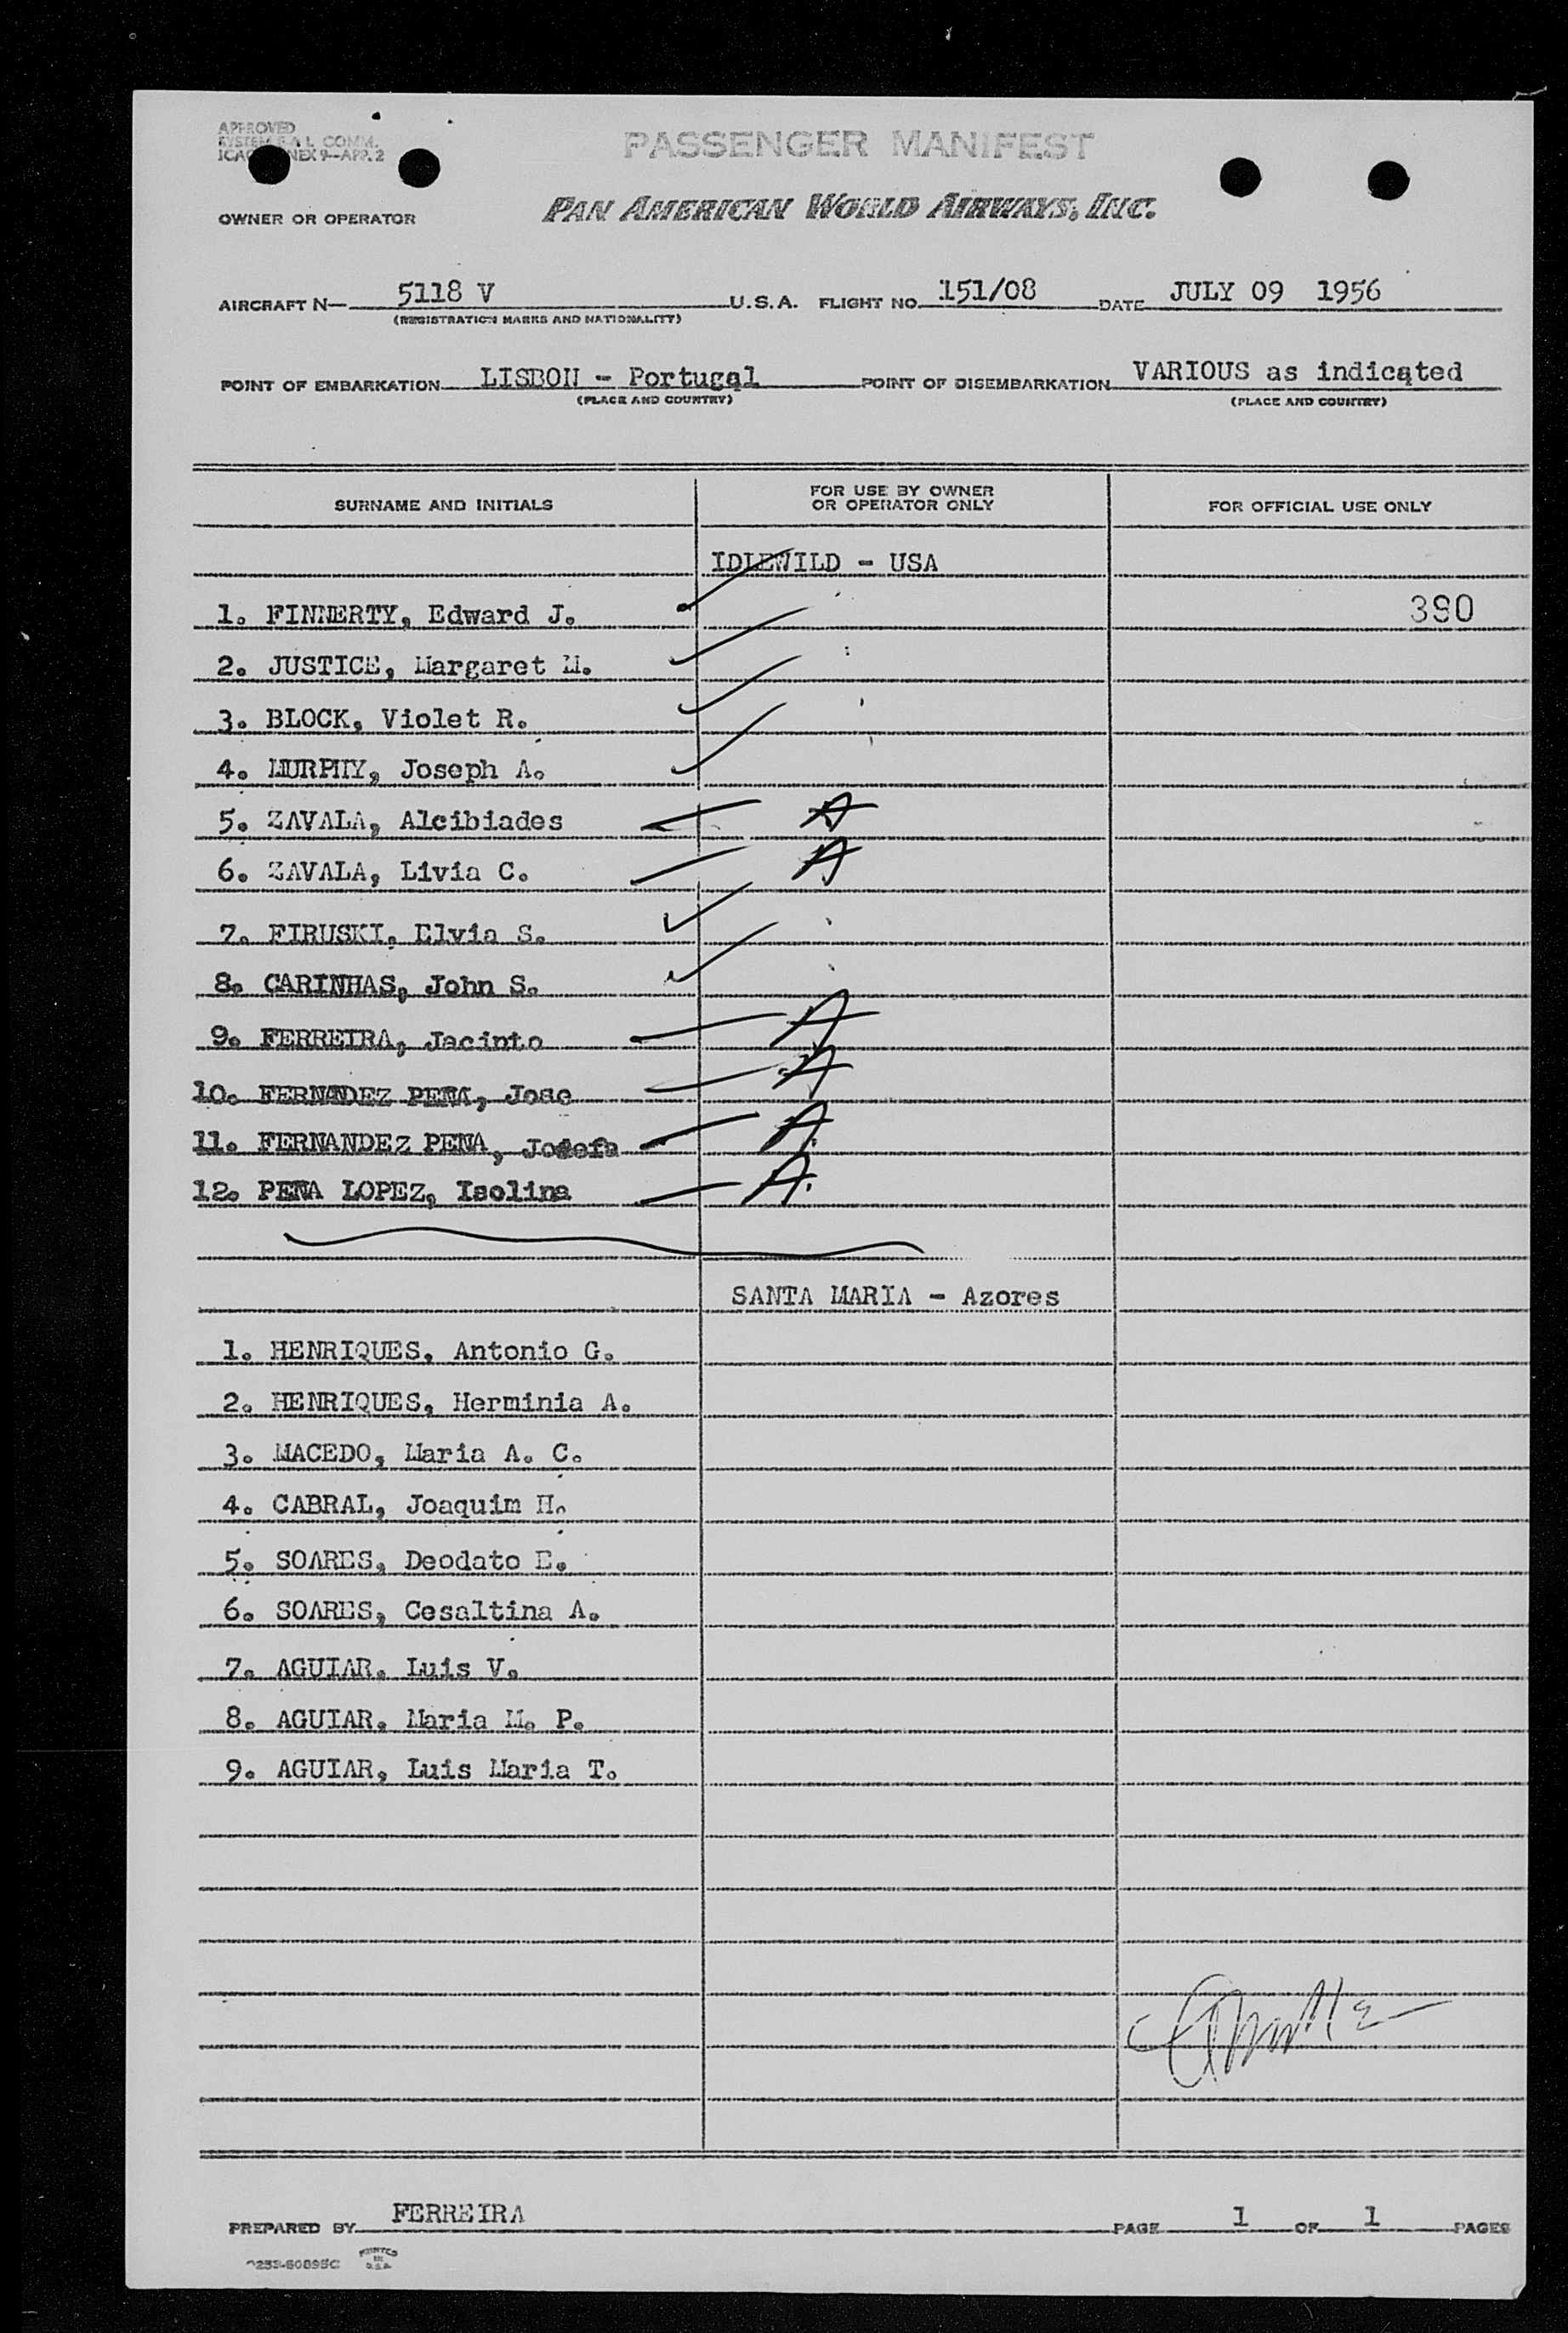 APPROVED
SYSTEM F A L COMM.
PASSENGER MANIFEST
OWNER OR OPERATOR
PAN AMERICAN WORLD AIRWAYS, INC.
AIRCRAFT N— 5118 V U.S.A. FLIGHT NO. 151/08 DATE JULY 09 1956
(REGISTRATION MARKS AND NATIONALITY)
POINT OF EMBARKATION LISBON - Portugal POINT OF DISEMBARKATION VARIOUS as indicated
(PLACE AND COUNTRY) (PLACE AND COUNTRY)
SURNAME AND INITIALS FOR USE BY OWNER OR OPERATOR ONLY FOR OFFICIAL USE ONLY
IDLEWILD - USA
1. FINNERTY, Edward J. 390
2. JUSTICE, Margaret M.
3. BLOCK, Violet R.
4. MURPHY, Joseph A.
5. ZAVALA, Alcibiades A
6. ZAVALA, Livia C. A
7. FIRUSKI, Elvia S.
8. CARINHAS, John S.
9. FERREIRA, Jacinto A
10. FERNANDEZ PENA, Jose A
11. FERNANDEZ PENA, Josefa A.
12. PENA LOPEZ, Isolina A.
SANTA MARIA - Azores
1. HENRIQUES, Antonio G.
2. HENRIQUES, Herminia A.
3. MACEDO, Maria A. C.
4. CABRAL, Joaquim H.
5. SOARES, Deodato E.
6. SOARES, Cesaltina A.
7. AGUIAR, Luis V.
8. AGUIAR, Maria M. P.
9. AGUIAR, Luis Maria T.
PREPARED BY FERREIRA PAGE 1 OF 1 PAGES
PRINTED IN U.S.A.